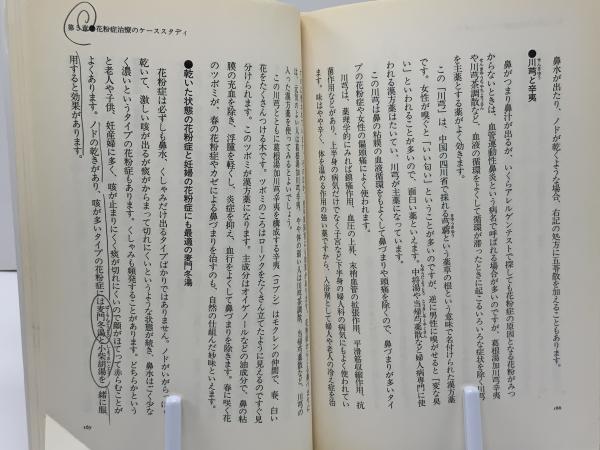 鼻水が出たり、ノドが乾くような場合、右記の処方に五苓散を加えることもあります。
●川芎と辛夷
鼻がつまり鼻汁が出るが、いくらアレルゲンテストで探しても花粉症の原因となる花粉がみつ
からないときは、血管運動性鼻炎という病名で呼ばれる場合が多いのですが、葛根湯加川芎辛夷
や川芎茶調散など、血液の循環をよくして循環が滞ったときに起こるいろいろな症状を除く川芎
を主薬とする薬がよく効きます。
この「川芎」は、中国の四川省で採れる芎藭という薬草の根という意味で名付けられた漢方薬
です。女性が嗅ぐと「いい匂い」ということが多いのですが、逆に男性に嗅がせると「変な臭
い」といわれることが多いので、面白い薬といえます。中将湯や当帰芍薬散など婦人病専門に使
われる漢方薬はたいてい、川芎が主薬になっています。
この川芎は鼻の粘膜の血液循環をもよくして鼻づまりや頭痛を除くので、鼻づまりが多いタイ
プの花粉症や女性の偏頭痛によく使われます。
川芎は、薬理学的にみれば鎮痛作用、血圧の上昇、末梢血管の拡張作用、平滑筋収縮作用、抗
菌作用などがあり、上半身の病気だけでなく子宮など下半身の婦人科の病気にもよく使われてい
ます。味はやや辛く、体を温める作用の強い薬ですから、入浴剤として婦人や老人の冷え症を治
166
第5章●花粉症治療のケーススタディ
入った漢方薬を使ってみるとよいでしょう。
この川芎とともに葛根湯加川芎辛夷を構成する辛夷（コブシ）はモクレンの仲間で、春、白い
花をたくさんつける木です。ツボミのころはローソクをたくさん立てたように見えるのですぐ見
分けられます。このツボミが漢方薬になります。主成分はオイゲノールなどの油成分で、鼻の粘
膜の充血を除き、浮腫を軽くし、炎症を抑え、血行をよくして鼻づまりを除きます。春に咲く花
のツボミが、春の花粉症やカゼによる鼻づまりを治すのも、自然の仕組んだ妙味といえます。
●乾いた状態の花粉症と妊婦の花粉症にも最適の麦門冬湯
花粉症は必ずしも鼻水、くしゃみだけ出るタイプばかりではありません。ノドがいがらっぽく
乾いて、激しい咳が出るが痰がからまって切れにくいというような状態が続き、鼻水は少なく
濃いというタイプの花粉症もあります。くしゃみも頻発することがあります。どちらかという
と老人や子供、妊産婦に多く、咳が止まりにくく痰が切れにくいので顔がほてって赤らむことが
よくあります。ノドの乾きがあり、咳が多いタイプの花粉症には麦門冬湯と小柴胡湯を一緒に服
用すると効果があります。
167